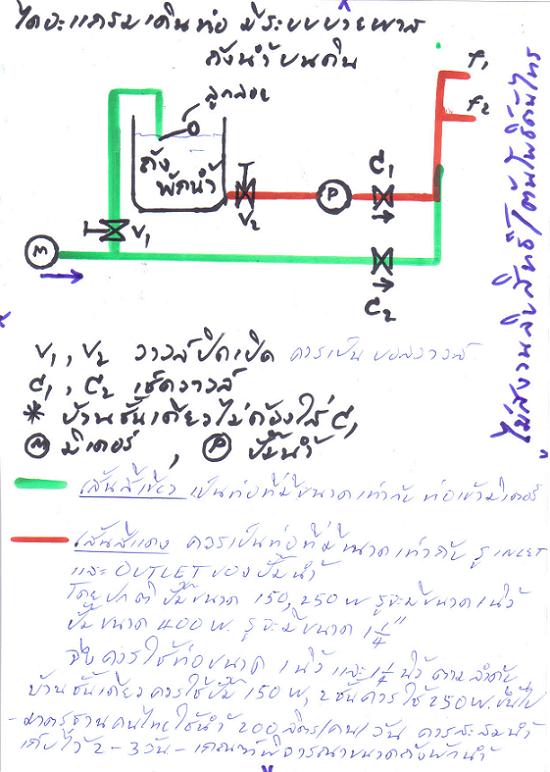 ไดอะแกรมเดินท่อ มีระบบบายพาส
ถังน้ำบนดิน
ลูกลอย
F1
F2
ถัง
พักน้ำ
V2
P
C1
V1
M
C2
ไม่สงวนลิขสิทธิ์/ต้นโพธิ์ต้นไทร
V1, V2 วาวล์ปิดเปิด ควรเป็น บอลวาวล์
C1, C2 เช็ควาวล์
* บ้านชั้นเดียวไม่ต้องใส่ C1
M มิเตอร์, P ปั๊มน้ำ
เส้นสีเขียว เป็นท่อที่มีขนาดเท่ากับ ท่อเข้ามิเตอร์
เส้นสีแดง ควรเป็นท่อที่มีขนาดเท่ากับ รู INLET
และ OUTLET ของปั๊มน้ำ
โดยปกติ ปั๊มขนาด 150, 250 W รูจะมีขนาด 1 นิ้ว
ปั๊มขนาด 400 W. รูจะมีขนาด 1 1/4"
จึงควรใช้ท่อขนาด 1 นิ้ว และ 1 1/4 นิ้ว ตามลำดับ
บ้านชั้นเดียวควรใช้ปั๊ม 150 W, 2 ชั้นควรใช้ 250 W. ขึ้นไป
- มาตรฐานคนไทยใช้น้ำ 200 ลิตร/คน/วัน ควรสะสมน้ำ
เก็บไว้ 2-3 วัน - เกณฑ์พิจารณาขนาดถังพักน้ำ